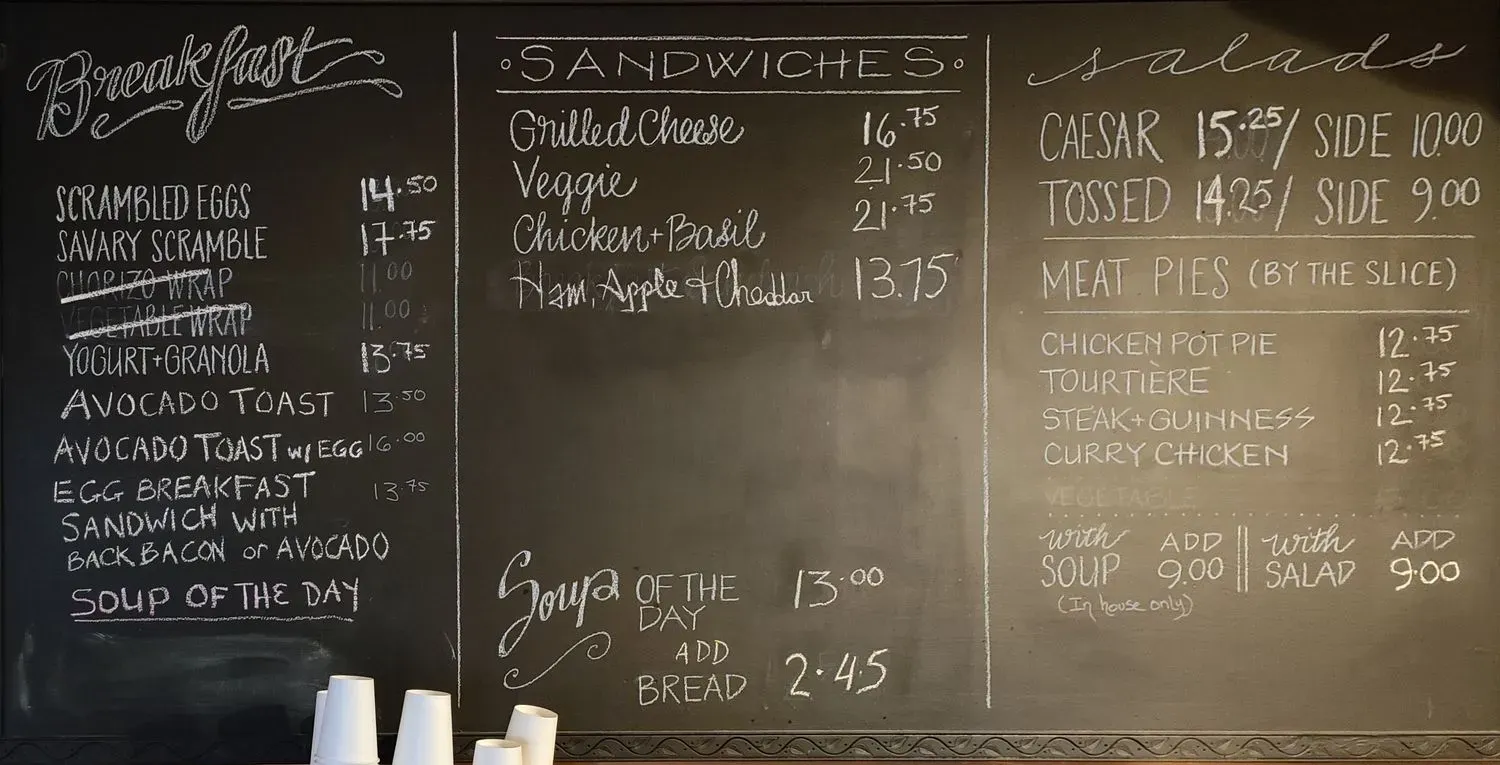 Breakfast
SCRAMBLED EGGS 14.50
SAVARY SCRAMBLE 17.75
CHORIZO WRAP 11.00
VEGETABLE WRAP 11.00
YOGURT+GRANOLA 13.75
AVOCADO TOAST 13.50
AVOCADO TOAST w/ EGG 16.00
EGG BREAKFAST 13.75
SANDWICH WITH
BACK BACON or AVOCADO
SOUP OF THE DAY
• SANDWICHES •
Grilled Cheese 16.75
Veggie 21.50
Chicken + Basil 21.75
Ham, Apple + Cheddar 13.75
Soup OF THE 13.00
DAY
ADD
BREAD 2.45
salads
CAESAR 15.25 / SIDE 10.00
TOSSED 14.25 / SIDE 9.00
MEAT PIES (BY THE SLICE)
CHICKEN POT PIE 12.75
TOURTIÈRE 12.75
STEAK+GUINNESS 12.75
CURRY CHICKEN 12.75
VEGETABLE
with ADD || with ADD
SOUP 9.00 || SALAD 9.00
(In house only)